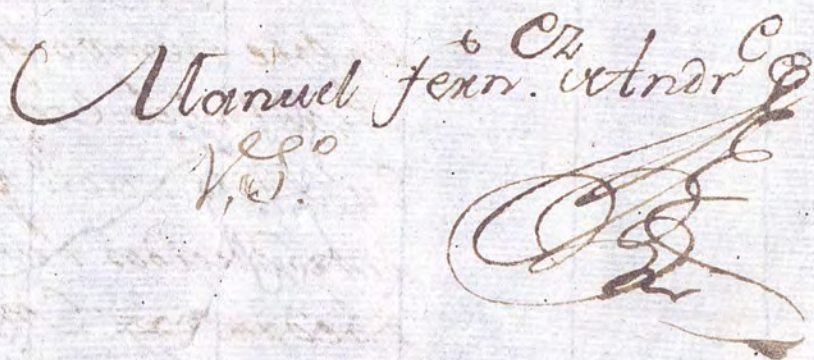 Manuel Fern.ez Andre
V,S.º